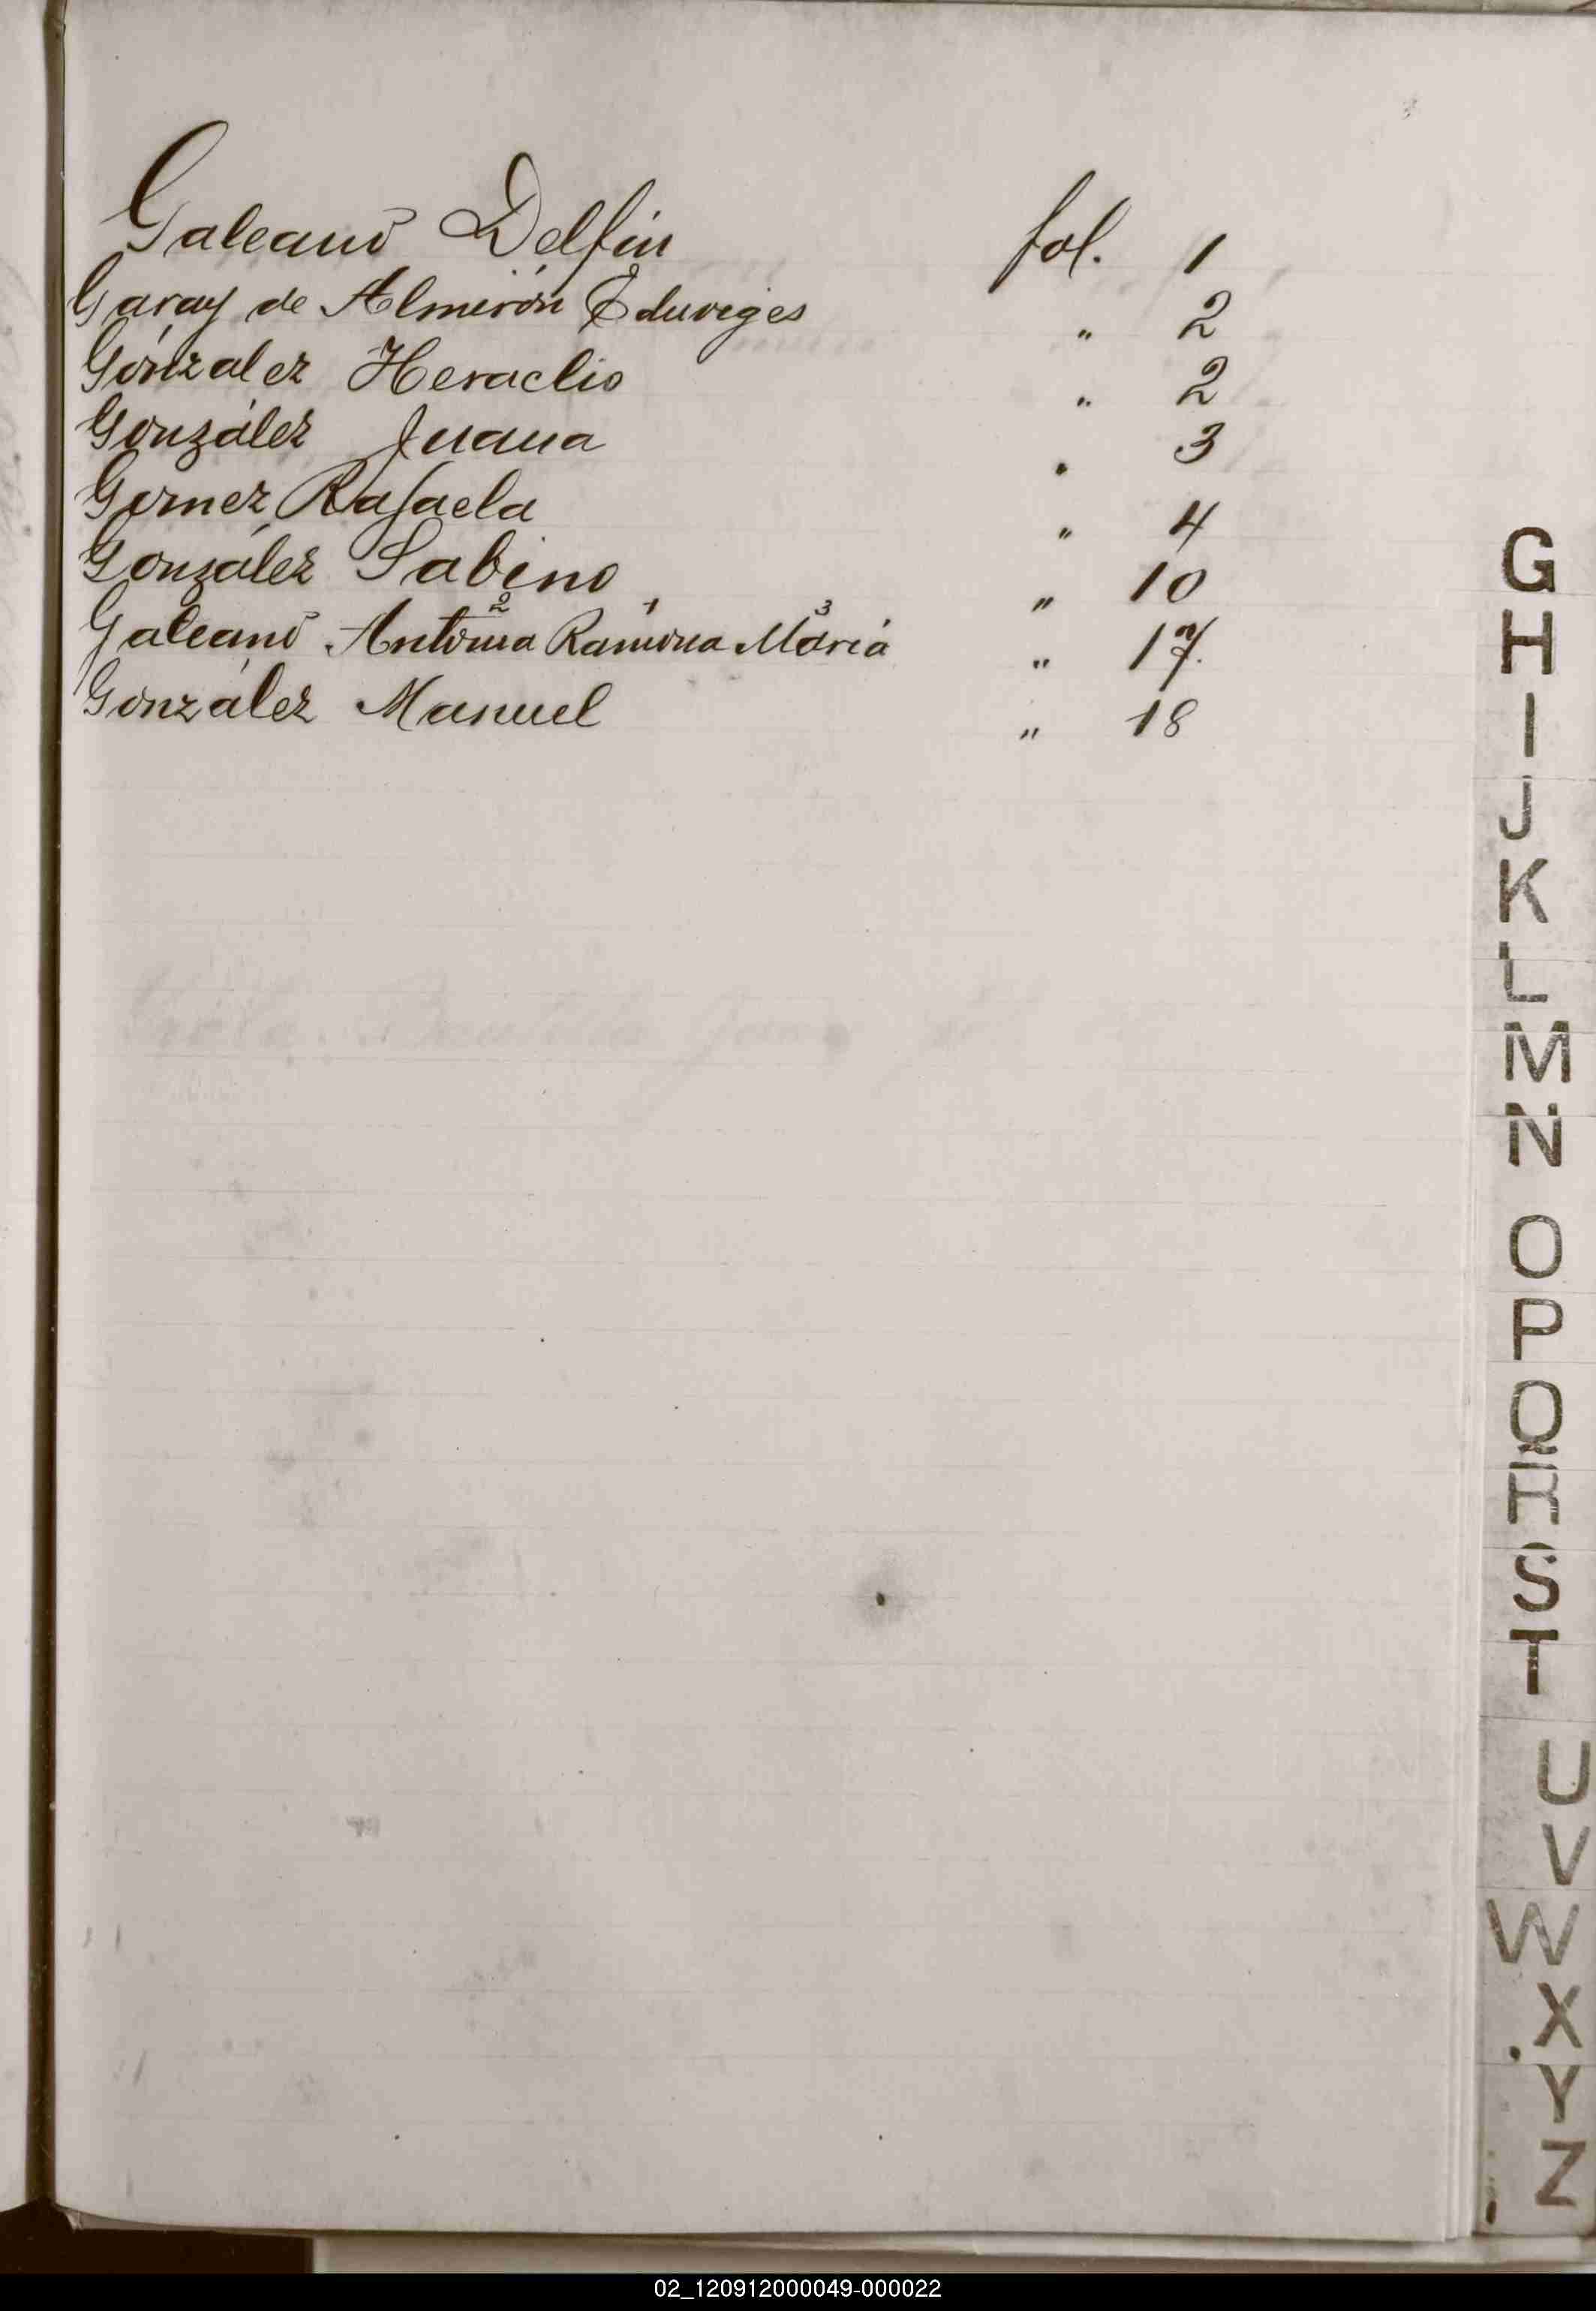 Galeano Delfin fol. 1
Garay de Almirón Eduviges " 2
Gónzalez Heraclio " 2
González Juana " 3
Gomez Rafaela " 4
González Sabino " 10
2 1 3
Galeano Antonia Ramona María " 17.
González Manuel " 18
G
H
I
J
K
L
M
N
O
P
Q
R
S
T
U
V
W
X
Y
Z
02_120912000049-000022